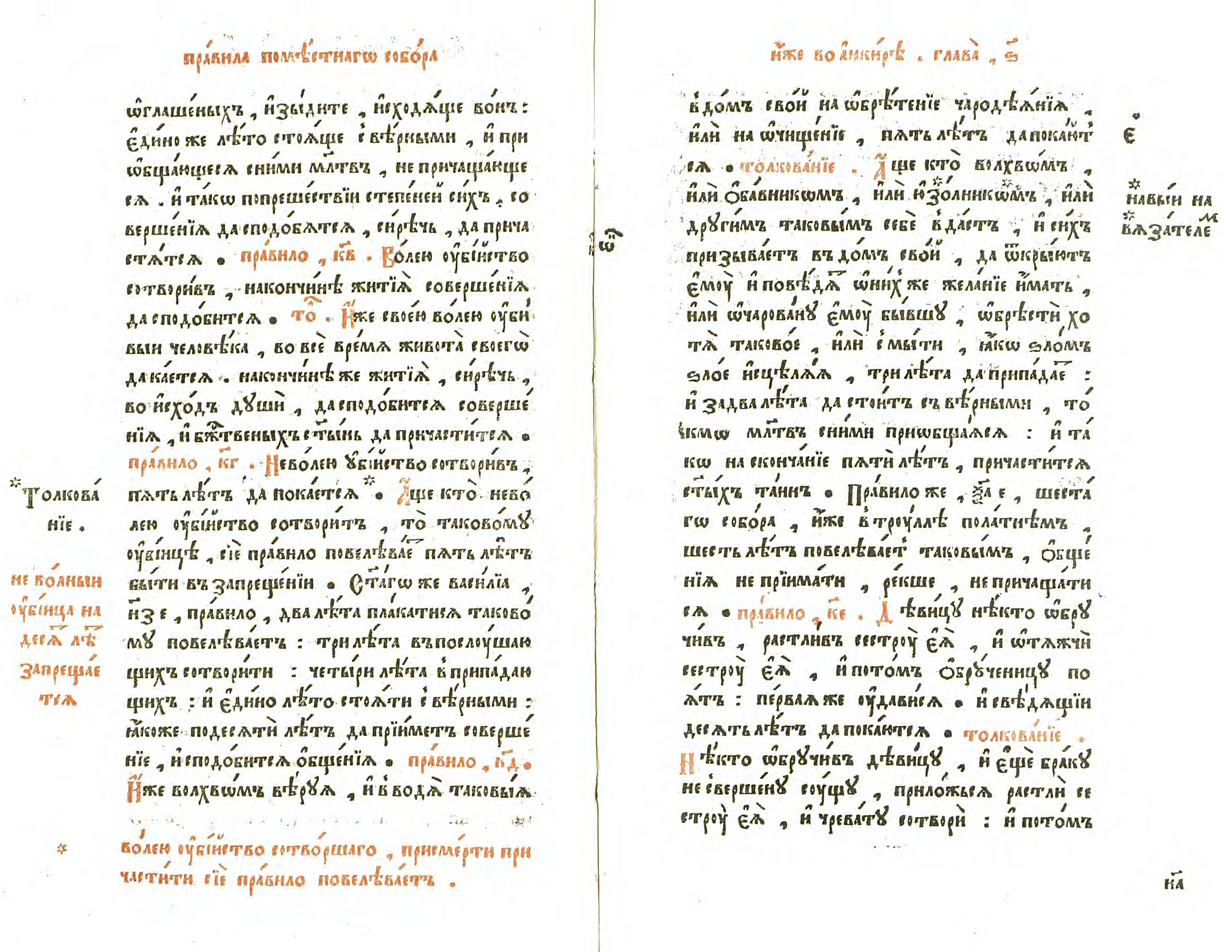 пра́вила помѣ́стнагѡ собо́ра
ѡ҆глаше́ныхъ , и҆зы́дите , и҆сходя́ще во́нъ :
є҆ди́но же лѣ́то стоя́ще с̾вѣ́рными , и҆ при
ѡ҆бща́ющеся сни́ми мл҃твъ , не причаща́юще
ся . и҆ та́кѡ попреше́ствїи степе́ней си́хъ , со
верше́нїѧ да сподо́бѧтсѧ , си́рѣчь , да прича
стѧ́тсѧ . пра́вило , к҃в . Во́лею ᲂу҆бі́йство
сотвори́въ , накончи́нѣ житїѧ̀ соверше́нїѧ
да сподо́битсѧ . то҃ . И҆́же свое́ю во́лею ᲂу҆би́
выи человѣ́ка , во всѐ вре́мѧ живота̀ своегѡ̀
да ка́етсѧ . накончи́нѣ же житїѧ̀ , си́рѣчь ,
во и҆схо́дъ дꙋшѝ , да сподо́битсѧ соверше́
нїѧ , и҆ бж҃твеныхъ ст҃ы́нь да причасти́тсѧ .
пра́вило , к҃г . Нево́лею ᲂу҆бі́йство сотвори́въ ,
пѧ́ть лѣ́тъ да пока́етсѧ * . А҆́ще кто̀ нево́
лею ᲂу҆бі́йство сотвори́тъ , то̀ таково́мꙋ
ᲂу҆бі́йцѣ , сїѐ пра́вило повелѣва́е пѧ́ть лѣ́тъ
бы́ти въ запреще́нїи . Ст҃а́гѡ же васи́лїа ,
н҃з е , пра́вило , два лѣ́та пла́катисѧ таково́
мꙋ повелѣва́етъ : три лѣ́та въ послꙋ́шаю
щихъ сотвори́ти : четы́ри лѣ́та в̾припа́даю
щихъ : и҆ є҆ди́но лѣ́то стоѧ́ти с̾вѣ́рными :
ꙗ҆́коже по десѧтѝ лѣ́тъ да прїи́метъ соверше́
нїе , и҆ сподо́битсѧ ѻ҆бще́нїѧ . пра́вило , к҃д .
И҆́же волхвѡ́мъ вѣ́рꙋѧ , и҆ в̾водѧ̀ таковы́ѧ
* Толкова́
нїе .
не во́лныи
ᲂу҆бі́ица на
десѧ лѣ
запреща́е
тсѧ
* во́лею ᲂу҆бі́йство сотво́ршаго , при сме́рти при
части́ти сїѐ пра́вило повелѣва́етъ .
и҆́же во а҆нки́рѣ . глава̀ , ѕ҃
в̾до́мъ сво́й на ѡ҆брѣ́тенїе чародѣѧ́нїѧ ,
и҆лѝ на ѡ҆чище́нїе , пѧ́ть лѣ́тъ да пока́ют
сѧ . толкова́нїе . А҆́ще кто̀ волхвѡ́мъ ,
и҆лѝ ѻ҆ба́вникѡмъ , и҆лѝ *и҆зо́лникѡмъ , и҆лѝ
дрꙋги́мъ таковы́мъ себѐ в̾да́стъ , и҆ си́хъ
призыва́етъ въ до́мъ сво́й , да ѿкры́ютъ
є҆мꙋ̀ и҆ повѣ́дѧ ѡ҆ни́хже жела́нїе и҆́мать ,
и҆лѝ ѡ҆чаро́ванꙋ є҆мꙋ̀ бы́вшꙋ , ѡ҆брѣстѝ хо
тѧ̀ таково́е , и҆лѝ с̾мы́ти , ꙗ҆́кѡ ѕло́мъ
ѕло́е и҆сцѣлѧ́ѧ , три лѣ́та да припа́дае :
и҆ за два лѣ́та да стои́тъ съ вѣ́рными , то́
кмѡ мл҃твъ сни́ми приѡбща́ѧсѧ : и҆ та́
кѡ на сконча́нїе пѧтѝ лѣ́тъ , причасти́тсѧ
ст҃ы́хъ та́инъ . Пра́вило же , ѯ҃а е , шеста́
гѡ собо́ра , и҆́же в̾трꙋ́ллѣ пола́тнѣмъ ,
ше́сть лѣ́тъ повелѣва́етъ таковы́мъ , ѻ҆бще́
нїѧ не прїима́ти , ре́кше , не причаща́ти
сѧ . пра́вило , к҃е . Дѣви́цꙋ нѣ́кто ѡ҆брꙋ
чи́въ , растли́въ сестрꙋ̀ є҆ѧ̀ , и҆ ѡ҆тѧжчѝ
сестрꙋ̀ є҆ѧ̀ , и҆ пото́мъ ѻ҆брꙋче́ницꙋ по
ѧ́тъ : пе́рваѧ же ᲂу҆дави́сѧ . и҆ свѣ́дѧщїи
де́сѧть лѣ́тъ да пока́ютсѧ . толкова́нїе .
Нѣ́кто ѡ҆брꙋчи́въ дѣви́цꙋ , и҆ є҆щѐ бра́кꙋ
не с̾верше́нꙋ сꙋ́щꙋ , приложьсѧ растлѝ се
строу̀ є҆ѧ̀ , и҆ чрева́тꙋ сотворѝ : и҆ пото́мъ
є҃
* навы́и на
* вѧза́теле м
н҃а